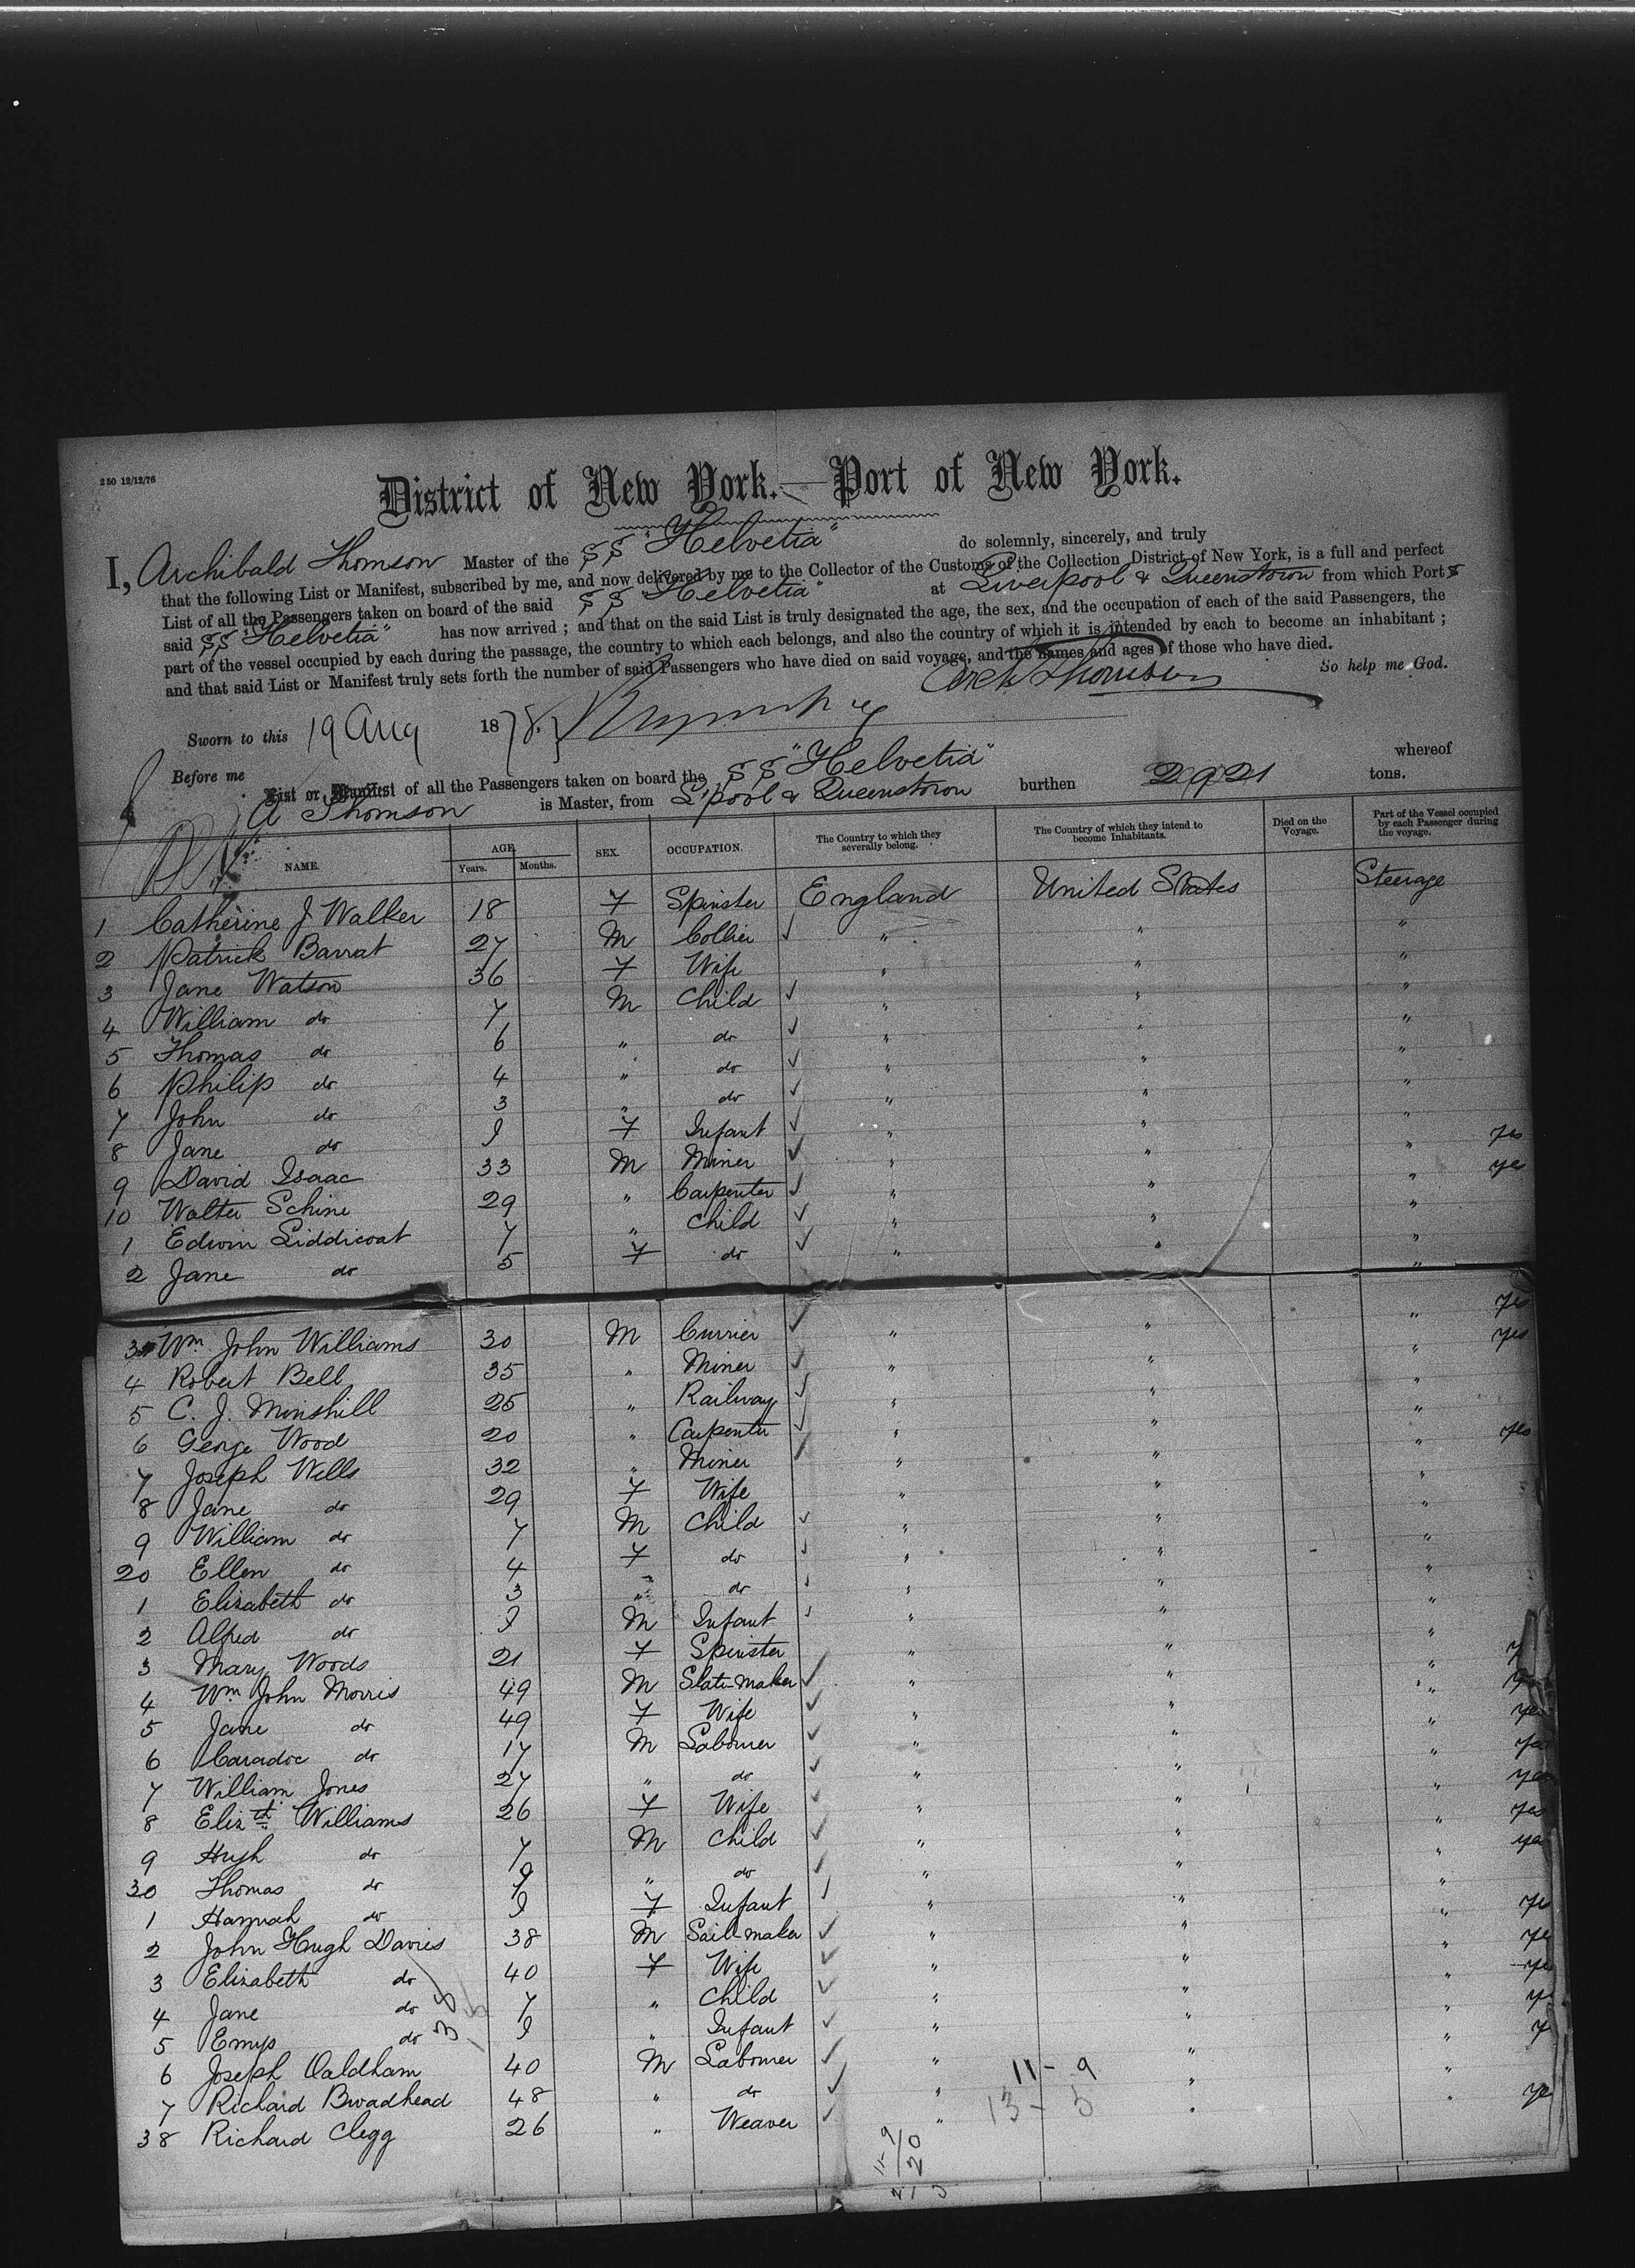 250 12/12/76
District of New York.—Port of New York.
I, Archibald Thomson Master of the SS "Helvetia" do solemnly, sincerely, and truly
that the following List or Manifest, subscribed by me, and now delivered by me to the Collector of the Customs of the Collection District of New York, is a full and perfect
List of all the Passengers taken on board of the said SS "Helvetia" at Liverpool & Queenstown from which Ports
said SS "Helvetia" has now arrived ; and that on the said List is truly designated the age, the sex, and the occupation of each of the said Passengers, the
part of the vessel occupied by each during the passage, the country to which each belongs, and also the country of which it is intended by each to become an inhabitant ;
and that said List or Manifest truly sets forth the number of said Passengers who have died on said voyage, and the names and ages of those who have died.
So help me God.
Arch Thomson
Sworn to this 19 Aug 1878.
Before me
List or Manifest of all the Passengers taken on board the SS "Helvetia" whereof
A Thomson is Master, from L'pool & Queenstown burthen 2921 tons.
NAME. AGE. Years. Months. SEX. OCCUPATION. The Country to which they severally belong. The Country of which they intend to become Inhabitants. Died on the Voyage. Part of the Vessel occupied by each Passenger during the voyage.
1 Catherine J Walker 18 F Spinster England United States Steerage
2 Patrick Barrat 27 M Collier " " "
3 Jane Watson 36 F Wife " " "
4 William do 7 M Child " " "
5 Thomas do 6 " do " " "
6 Philip do 4 " do " " "
7 John do 3 " do " " "
8 Jane do I F Infant " " "
9 David Isaac 33 M Miner " " " yes
10 Walter Schine 29 " Carpenter " " " yes
1 Edwin Liddicoat 7 " Child " " "
2 Jane do 5 F do " " "
3 Wm John Williams 30 M Currier " " " yes
4 Robert Bell 35 " Miner " " " yes
5 C. J. Minshill 25 " Railway " " "
6 George Wood 20 " Carpenter " " "
7 Joseph Wells 32 " Miner " " " yes
8 Jane do 29 F Wife " " "
9 William do 7 M Child " " "
20 Ellen do 4 F do " " "
1 Elizabeth do 3 " do " " "
2 Alfred do I M Infant " " "
3 Mary Woods 21 F Spinster " " "
4 Wm John Morris 49 M Slate-maker " " " yes
5 Jane do 49 F Wife " " " yes
6 Caradoc do 17 M Labourer " " " yes
7 William Jones 27 " do " " " yes
8 Elizth Williams 26 F Wife " " " yes
9 Hugh do 7 M Child " " " yes
30 Thomas do " do " " "
1 Hannah do I F Infant " " " yes
2 John Hugh Davies 38 M Sail-maker " " " yes
3 Elizabeth do 40 F Wife " " " yes
4 Jane do 7 " Child " " " y
5 Emys do I " Infant " " " y
6 Joseph Oaldham 40 M Labourer " " "
7 Richard Broadhead 48 " do " " " ye
38 Richard Clegg 26 " Weaver " "
11 - 9
13 - 5